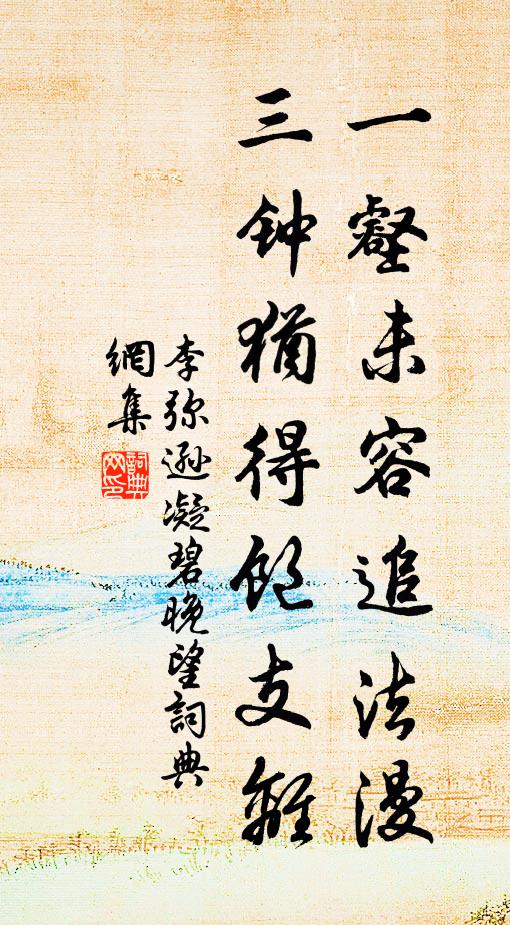 一壑未容追法漫
三钟猶得飽支離
李弥遜凝碧晚望詞典
網集
詞典
网印